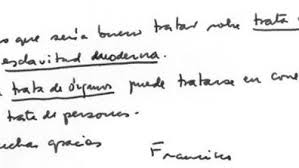 que sería bueno tratar sobre trata
esclavitud moderna.
trata de órganos puede tratarse en
trata de personas.
gracias Francisco